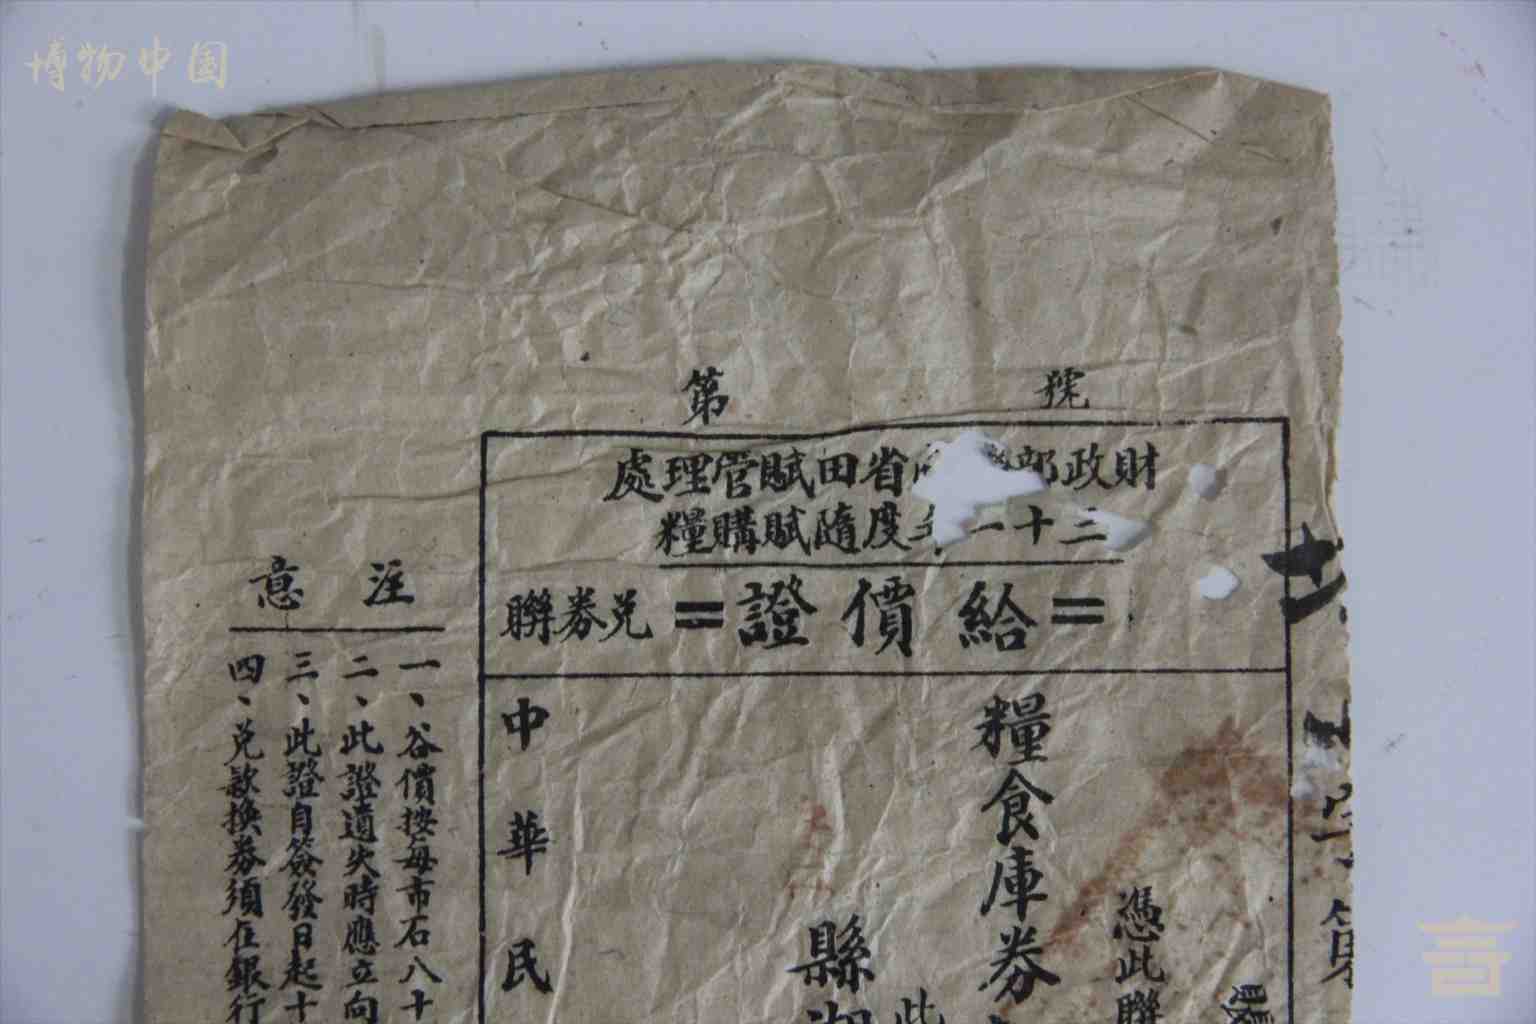 博物中国
第 號
財政部 省田賦管理處
三十一年度隨賦購糧
=給價證=
兌券聯
憑此聯
糧食庫券
此
縣湖
中華民
注意
一、谷價按每市石八十
二、此證遺失時應立向
三、此證自簽發日起十
四、兌款換券須在銀行
字第